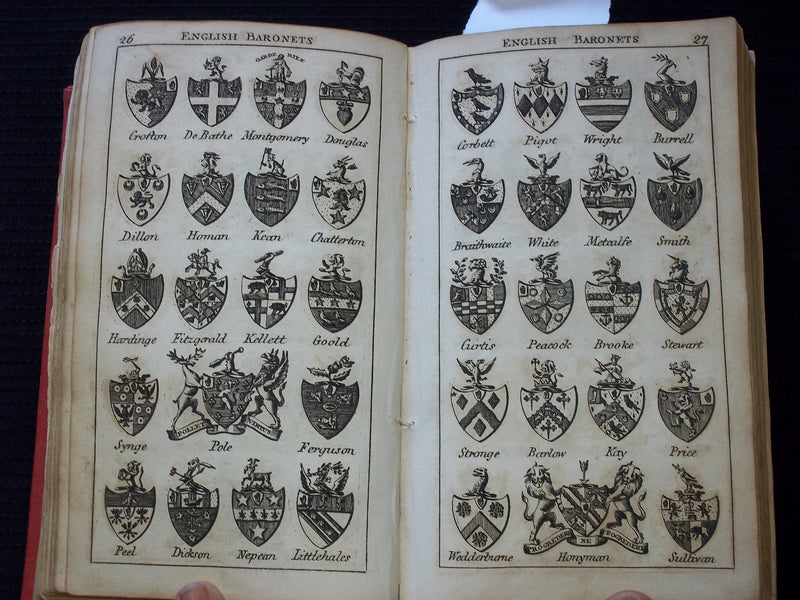 26 ENGLISH BARONETS
GARDE BIEN
Crofton De Bathe Montgomery Douglas
Dillon Homan Kean Chatterton
Hardinge Fitzgerald Kellett Goold
POLLET VIRTUS
Synge Pole Ferguson
Peel Dickson Nepean Littlehales
ENGLISH BARONETS 27
Corbett Pigot Wright Burrell
Braithwaite White Metcalfe Smith
Curtis Peacock Brooke Stewart
Stronge Barlow Kay Price
PROGREDERE NE REGREDERE
Wedderburne Honyman Sullivan